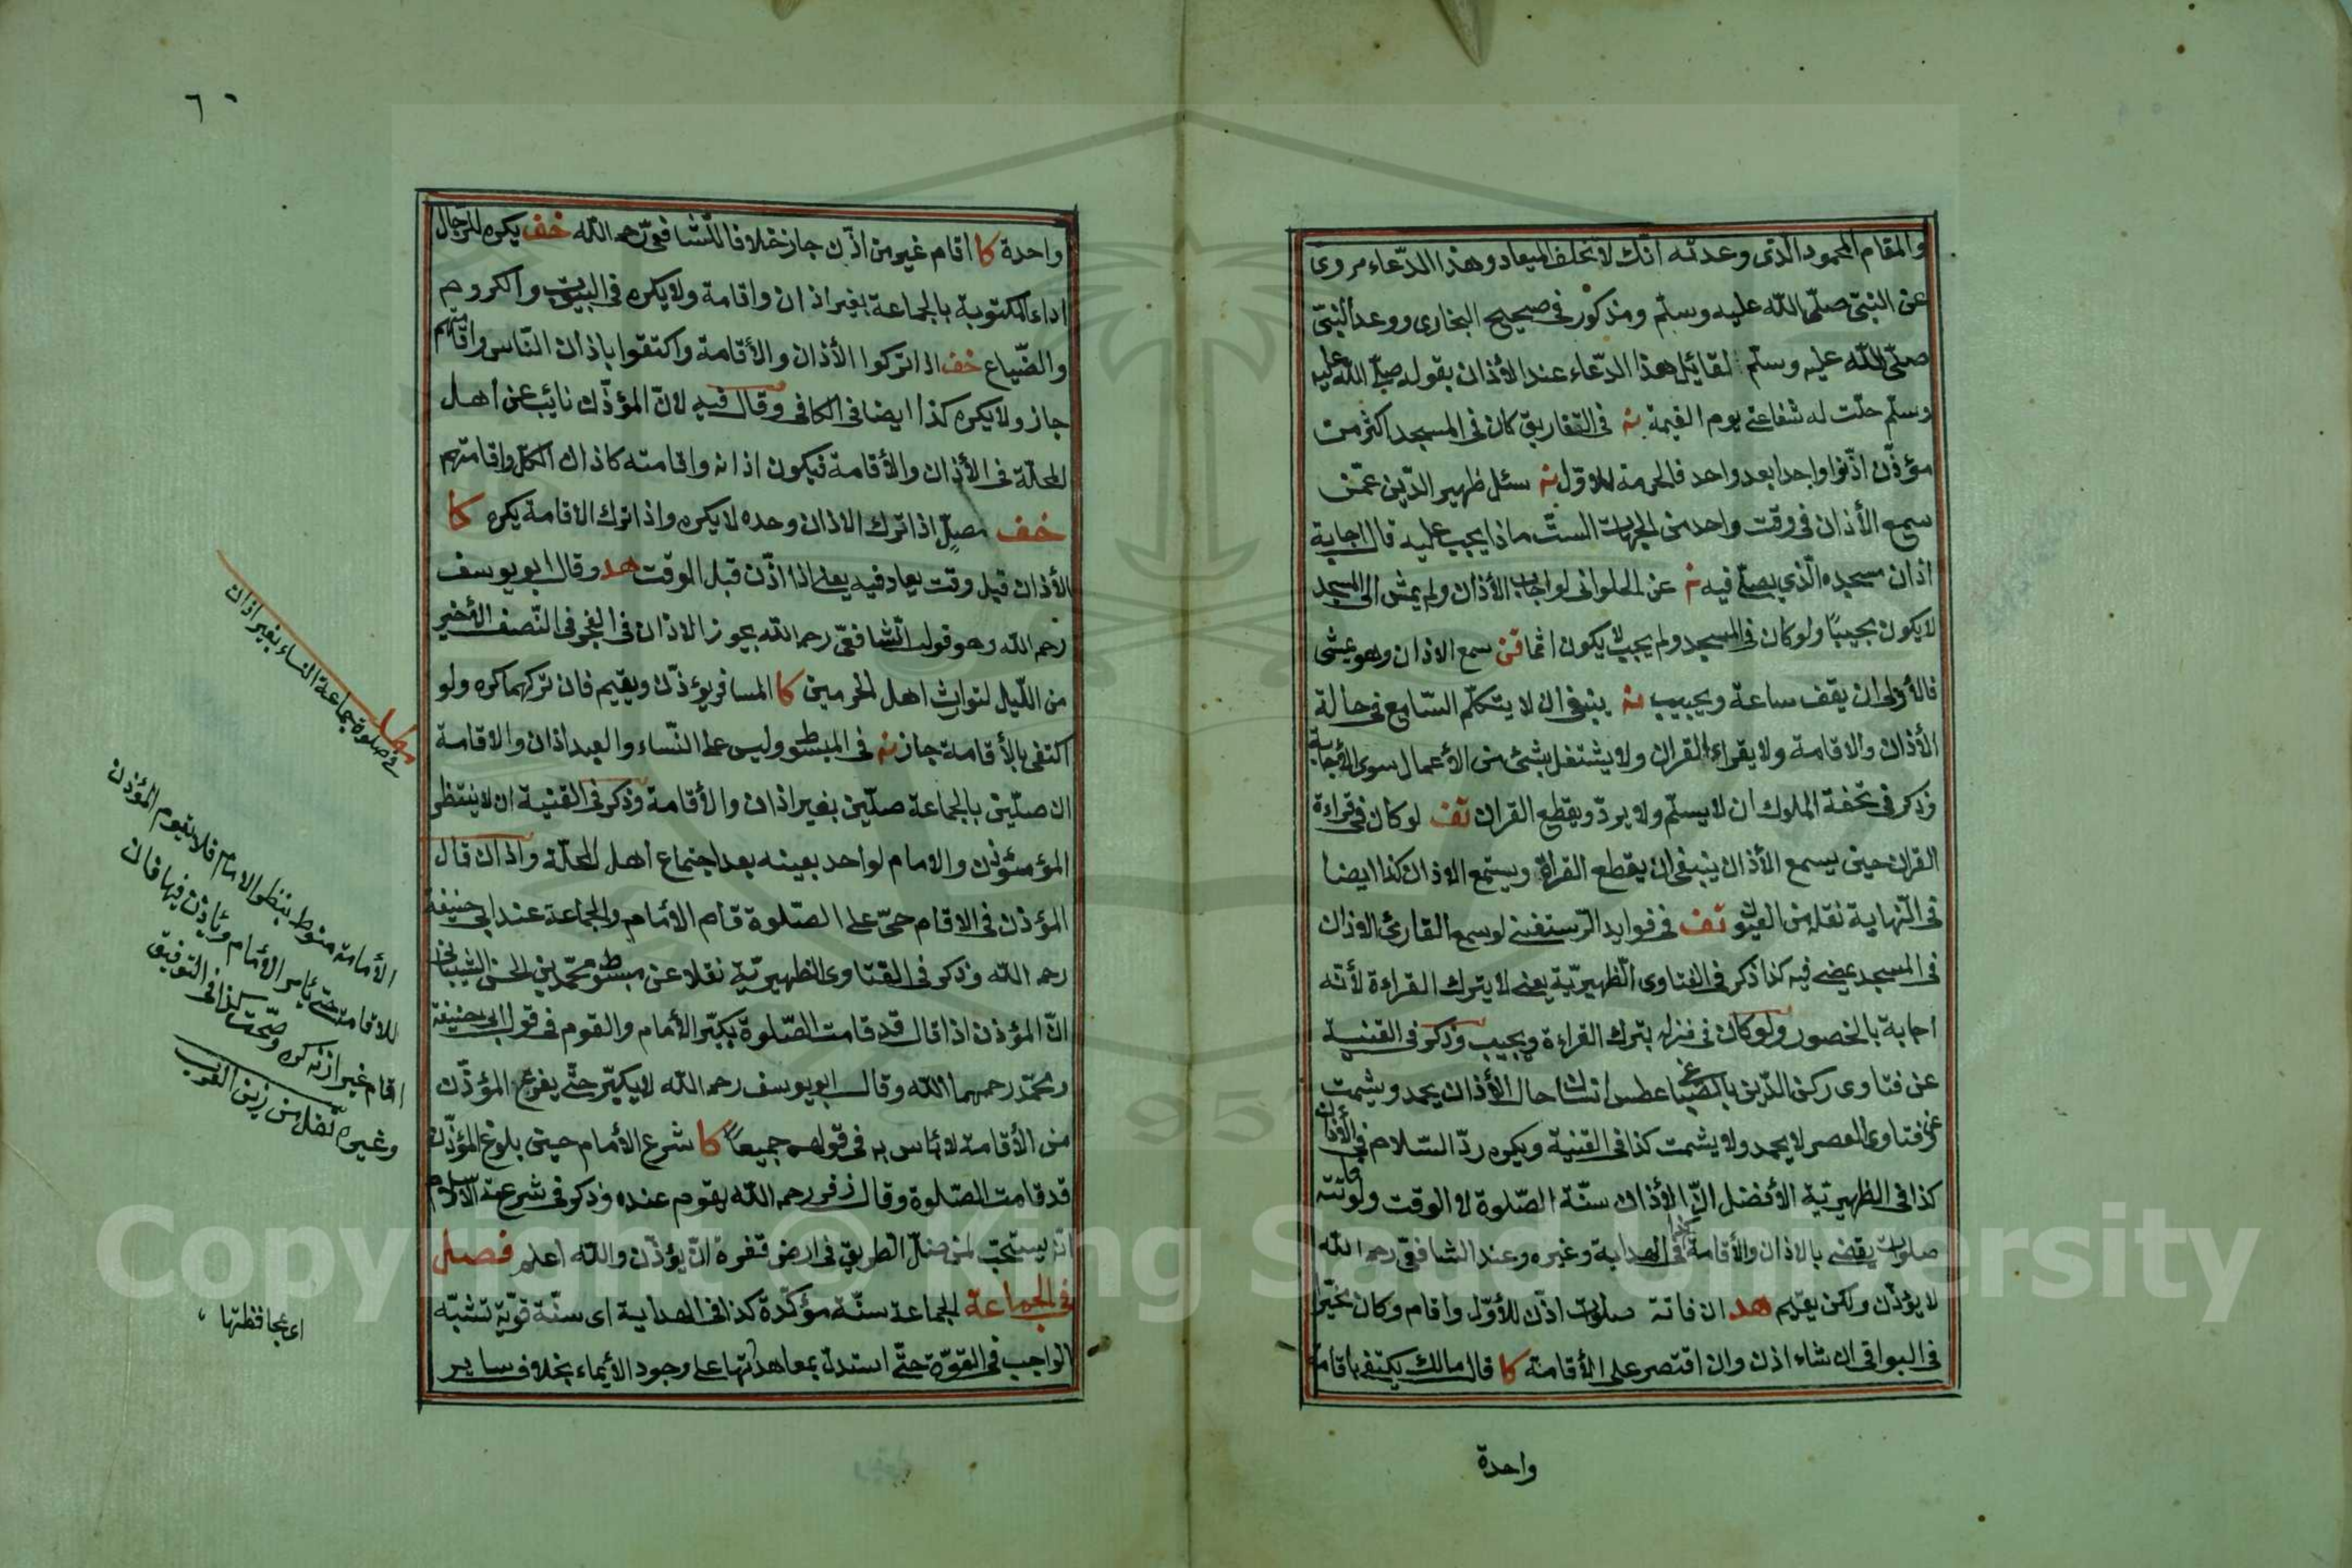 والمقام المحمود الذى وعدته انك لا تخلف الميعاد وهذا الدّعاء مروى
عن النبىّ صلّى اللّه عليه وسلّم ومذكور فى صحيح البخارى ووعد النبىّ
صلّى اللّه عليه وسلّم لقائل هذا الدّعاء عند الأذان بقوله صلّى اللّه عليه
وسلّم حلّت له شفاعتى يوم القيمة نه فى التفاريق كان فى المسجد اكثر من
مؤذّن اذّنوا واحدا بعد واحد فالحرمة للاوّل نه سئل ظهير الدّين عمّن
سمع الأذان فى وقت واحد من الجهات الستّ ماذا يجب عليه قال اجابة
اذان مسجده الّذى يصلّى فيه نه عن الحلوانى لو اجاب الأذان ولم يمش الى المسجد
لا يكون مجيبًا ولو كان فى المسجد ولم يجب لا يكون اثما قن سمع الاذان وهو يمشى
فالأولى ان يقف ساعة ويجيب نه ينبغى ان لا يتكلّم السّامع فى حالة
الأذان والاقامة ولا يقراء القران ولا يشتغل بشئ من الأعمال سوى الأجابة
وذكر فى تحفة الملوك ان لا يسلّم ولا يردّ ويقطع القران تف لو كان فى قراءة
القران حين يسمع الأذان ينبغى ان يقطع القراة ويستمع الاذان كذا ايضا
فى النّهاية نقلا من العيون تف فى فوايد الرّستغفنى لو سمع القارئ الاذان
فى المسجد يمضى فيه كذا ذكر فى الفتاوى الظّهيريّة يعنى لا يترك القراءة لأنّه
اجابة بالحضور ولو كان فى منزله يترك القراءة ويجيب وذكر فى القنية
عن فتاوى ركن الدّين عطس انسان حال الأذان يحمد ويشمت
عن فتاوى العصر لا يحمد ولا يشمت كذا فى القنية ويكره ردّ السّلام فى الأذان
كذا فى الظهيريّة الأفضل انّ الأذان سنّة الصّلوة لا الوقت ولو فاتته
صلوات يقضى بالاذان والأقامة كذا فى الهداية وغيره وعند الشافعىّ رحمه اللّه
لا يؤذّن ولكن يقيم هد ان فاتته صلوات اذّن للأوّل واقام وكان مخيّرا
فى البواقى ان شاء اذن وان اقتصر على الأقامة كا قال مالك يكتفى باقامة
واحدة
٦٠
واحدة كا اقام غير من اذّن جاز خلافا للشافعىّ رحمه اللّه خف يكره للرّجال
اداء المكتوبة بالجماعة بغير اذان واقامة ولا يكره فى البيوت والكروم
والضّياع خف اذا تركوا الأذان والأقامة واكتفوا باذان النّاس واقامتهم
جاز ولا يكره كذا ايضا فى الكافى وقال فيه لانّ المؤذّن نائب عن اهل
المحلّة فى الأذان والأقامة فيكون اذانه واقامته كاذان الكلّ واقامتهم
خف مصلٍّ اذا ترك الاذان وحده لا يكره واذا ترك الاقامة يكره كا
الأذان قبل وقت يعاد فيه يعنى اذا اذّن قبل الوقت هد وقال ابو يوسف
رحمه اللّه وهو قول الشّافعىّ رحمه اللّه يجوز الاذان فى الفجر فى النّصف الأخير
من اللّيل لتوارث اهل الحرمين كا المسافر يؤذّن ويقيم فان تركهما كره ولو
اكتفى بالأقامة جاز نه فى المبسوط وليس على النّساء والعبد اذان والاقامة
ان صلّين بالجماعة صلّين بغير اذان والأقامة وذكر فى القنية ان لا ينتظر
المؤذن والامام لواحد بعينه بعد اجتماع اهل المحلّة واذا قال
المؤذن فى الاقام حىّ على الصّلوة قام الامام والجماعة عند ابى حنيفة
رحمه اللّه وذكر فى الفتاوى الظهيريّة نقلا عن مبسوط محمّد بن الحسن الشيبانى
انّ المؤذن اذا قال قد قامت الصّلوة يكبّر الأمام والقوم فى قول ابى حنيفة
ومحمّد رحمهما اللّه وقال ابو يوسف رحمه اللّه لا يكبّر حتّى يفرغ المؤذّن
من الأقامة لا بأس به فى قولهم جميعًا كا شرع الأمام حين بلوغ المؤذّن
قد قامت الصّلوة وقال زفر رحمه اللّه يقوم عنده وذكر فى شرعة الاسلام
انّه يستحبّ لمن ضلّ الطريق فى ارض قفرة انّ يؤذّن واللّه اعلم فصل
فى الجماعة الجماعة سنّة مؤكّدة كذا فى الهداية اى سنّة قويّة تشبّه
الواجب فى القوّة حتّى استدلّ بمعاهدتها على وجود الأيماء بخلاف ساير
مطلب
فى صلوة جماعة النساء بغير اذان
الأمامة منوط بنظر الامام فلا يقوم المؤذن
للاقامة حتى يأمر الأمام ويأذن فيها فان
اقام غير اذنه كره وصحّت كذا فى التوفيق
وغيره نقل من زين العرب
اى محافظتها